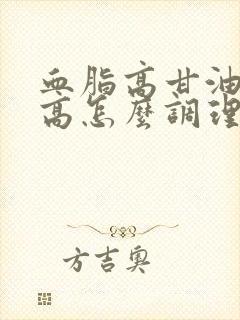 血脂高甘油
高怎麼調理
方吉奥